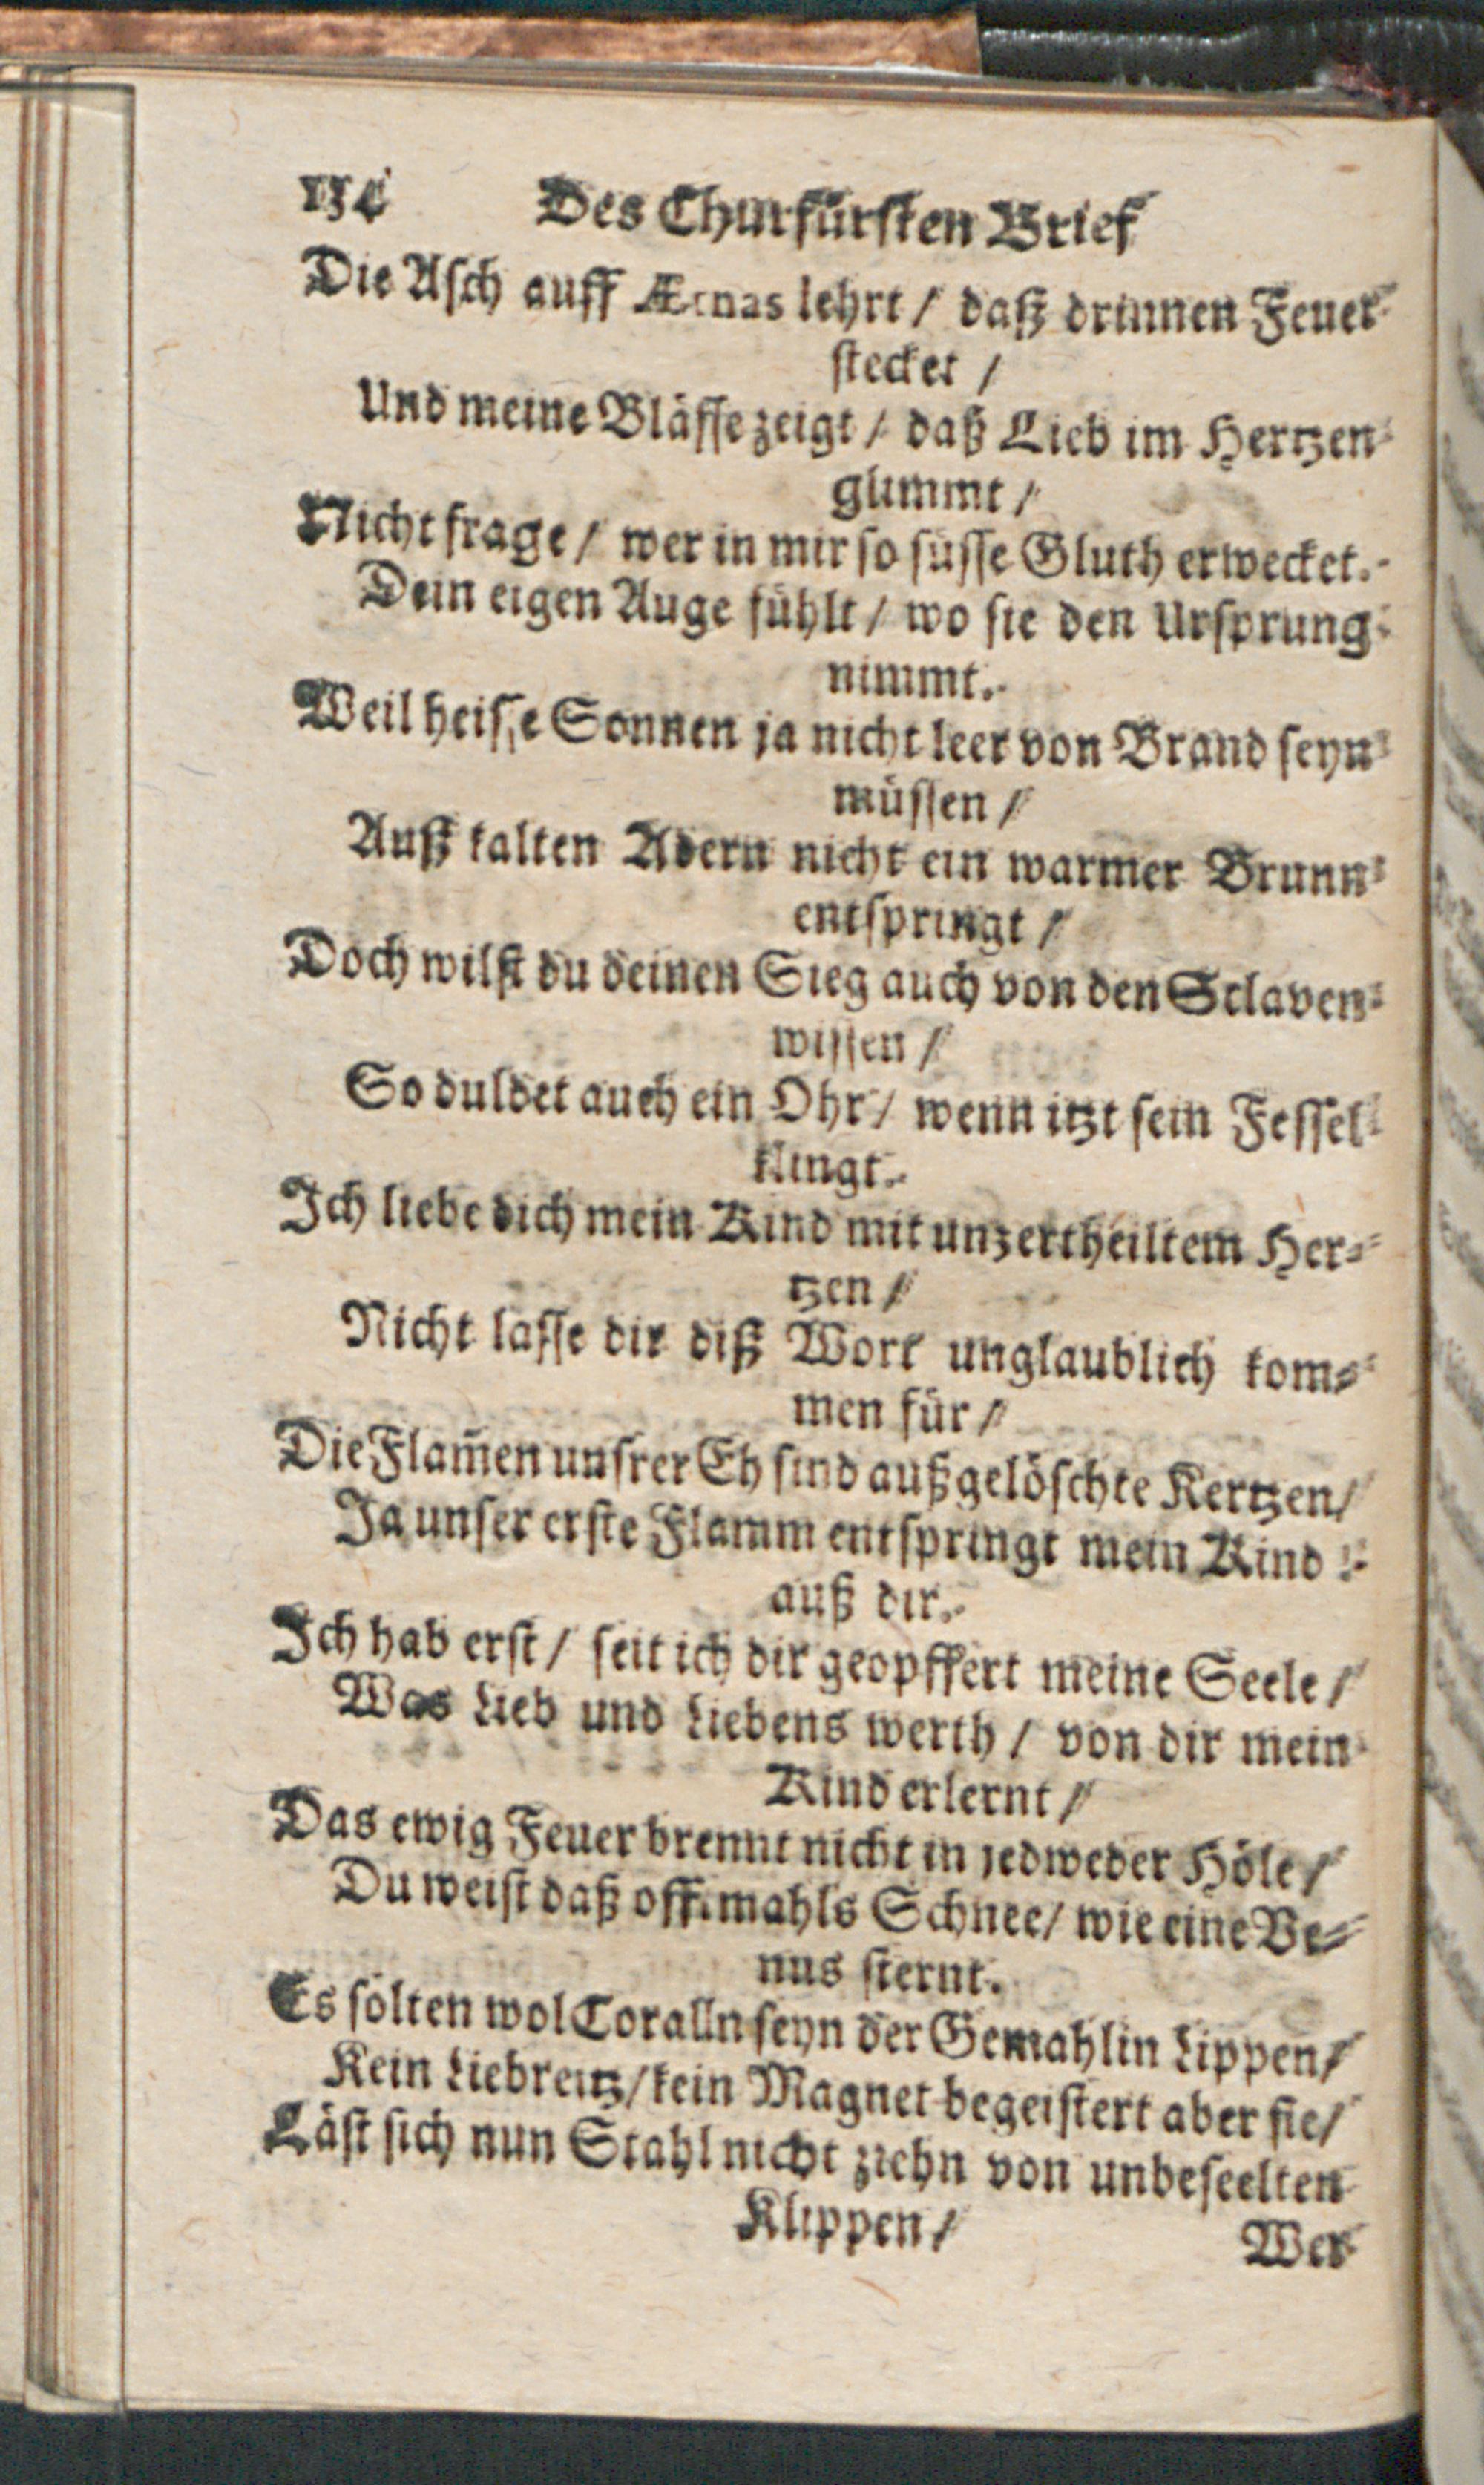 154 Des Churfürsten Brief
Die Asch auff Ætnas lehrt / daß drinnen Feuer
stecket /
Und meine Blässe zeigt / daß Lieb im Hertzen
glimmt /
Nicht frage / wer in mir so süsse Gluth erwecket.
Dein eigen Auge fühlt / wo sie den Ursprung
nimmt.
Weil heisse Sonnen ja nicht leer von Brand seyn
müssen /
Auß kalten Adern nicht ein warmer Brunn
entspringt /
Doch wilst du deinen Sieg auch von den Sclaven
wissen /
So duldet auch ein Ohr / wenn itzt sein Fessel
klingt.
Ich liebe dich mein Kind mit unzertheiltem Her-
tzen /
Nicht lasse dir diß Wort unglaublich kom-
men für /
Die Flam̃en unsrer Eh sind außgelöschte Kertzen /
Ja unser erste Flamm entspringt mein Kind !
auß dir.
Ich hab erst / seit ich dir geopffert meine Seele /
Was Lieb und Liebens werth / von dir mein
Kind erlernt /
Das ewig Feuer brennt nicht in jedweder Höle /
Du weist daß offtmahls Schnee / wie eine Ve-
nus sternt.
Es solten wol Coralln seyn der Gemahlin Lippen /
Kein Liebreitz / kein Magnet begeistert aber sie /
Läst sich nun Stahl nicht ziehn von unbeseelten
Klippen /
Wer